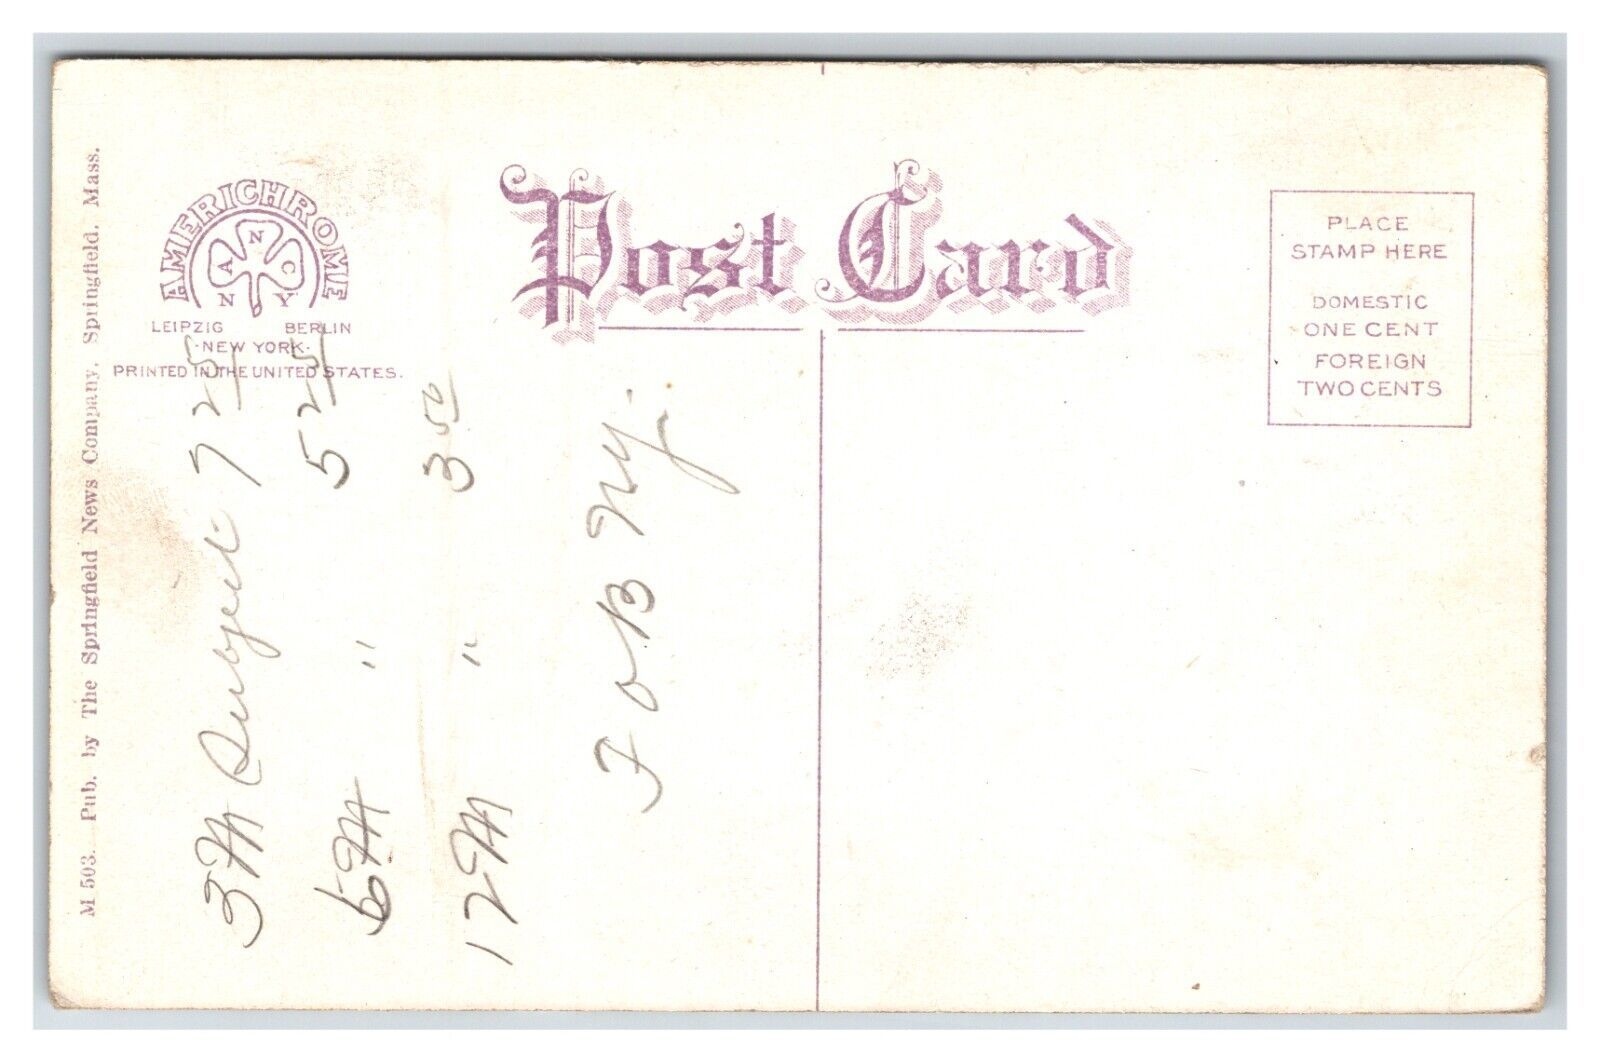 Post Card
AMERICHROME
A N C
N Y
LEIPZIG BERLIN
·NEW YORK·
PRINTED IN THE UNITED STATES.
M 503. Pub. by The Springfield News Company, Springfield, Mass.
PLACE
STAMP HERE
DOMESTIC
ONE CENT
FOREIGN
TWO CENTS
3M Subject 7 25
6M " 5 25
12M " 3 50
F O B NY.